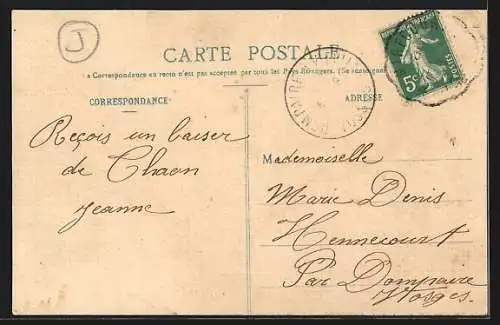 J
CARTE POSTALE
La Correspondance au recto n'est pas acceptée par tous les Pays Étrangers. (Se renseigner
CORRESPONDANCE
ADRESSE
5c
POSTES
Reçois un baiser
de Chaon
Jeanne
Mademoiselle
Marie Denis
Hennecourt
Par Dompaire
Vosges